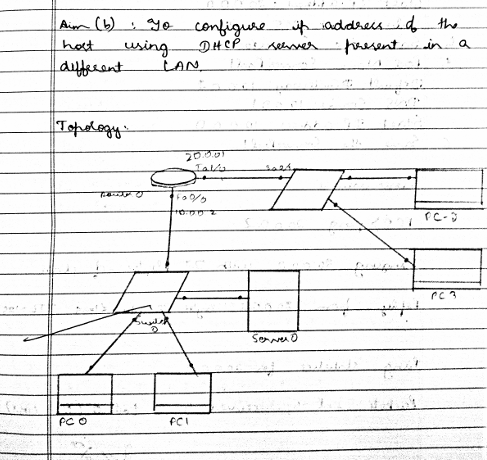 Aim (b) : To configure ip address of the
host using DHCP server present in a
different LAN.
Topology:
20.0.0.1
Fa1/0
Router 0
Fa0/0
10.0.0.2
PC-2
PC 3
Switch
0
Server 0
PC 0
PC1